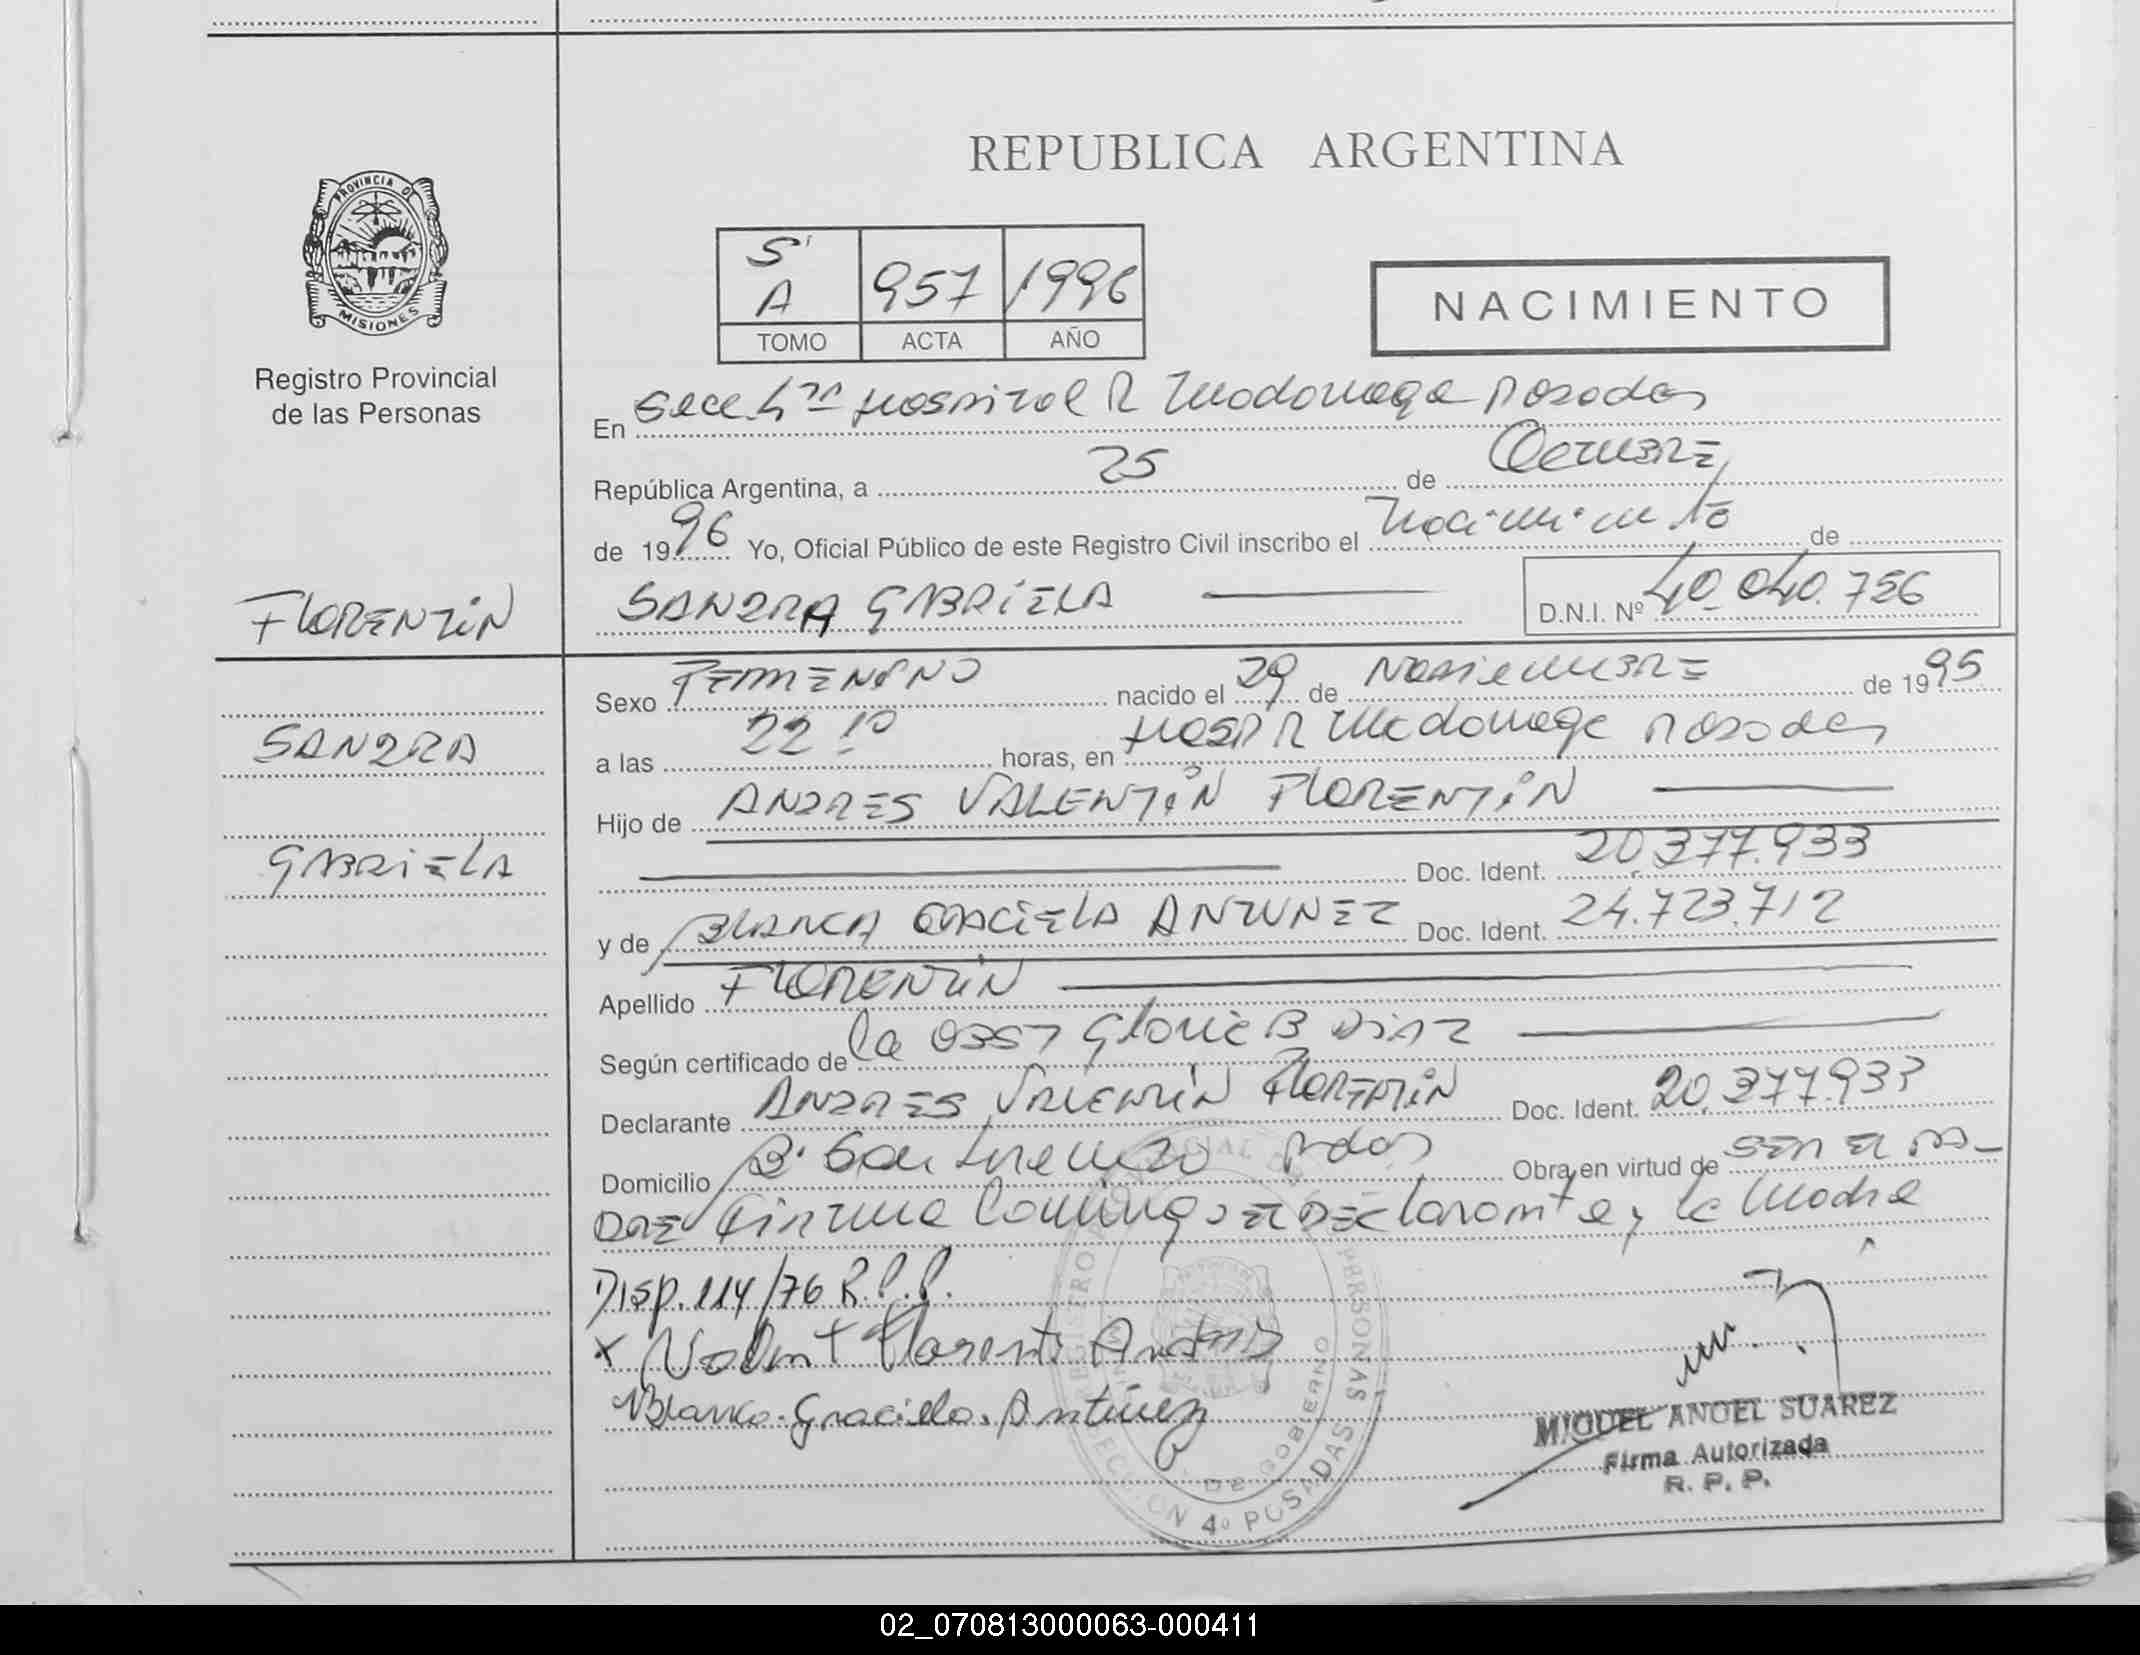 REPUBLICA ARGENTINA
PROVINCIA DE
MISIONES
Registro Provincial
de las Personas
S'
A 957 1996
TOMO ACTA AÑO
NACIMIENTO
En Secc 4ta Hospital R Madariaga Posadas
República Argentina, a 25 de Octubre
de 1996 Yo, Oficial Público de este Registro Civil inscribo el Nacimiento de
FLORENTIN
SANDRA GABRIELA
D.N.I. Nº 40.040.756
Sexo FEMENINO nacido el 29 de Noviembre de 1995
SANDRA
a las 22 10 horas, en Hosp R Madariaga Posadas
Hijo de ANDRES VALENTIN FLORENTIN
GABRIELA
Doc. Ident. 20.377.933
y de BLANCA GRACIELA ANTUNEZ Doc. Ident. 24.723.712
Apellido FLORENTIN
Según certificado de la OBST Gloria B DIAZ
Declarante ANDRES VALENTIN FLORENTIN Doc. Ident. 20.377.933
Domicilio B. San Lorenzo Pdas Obra en virtud de SER EL PA-
DRE Firman Conmigo EL DEClarante y la Madre
Disp. 114/76 R.P.P.
x Valent Florenti Andres
Blanca. Graciela. Antúnez
REGISTRO PROVINCIAL DE LAS PERSONAS
DE GOBIERNO
SECCION 4º POSADAS
MIGUEL ANGEL SUAREZ
Firma Autorizada
R. P. P.
02_070813000063-000411